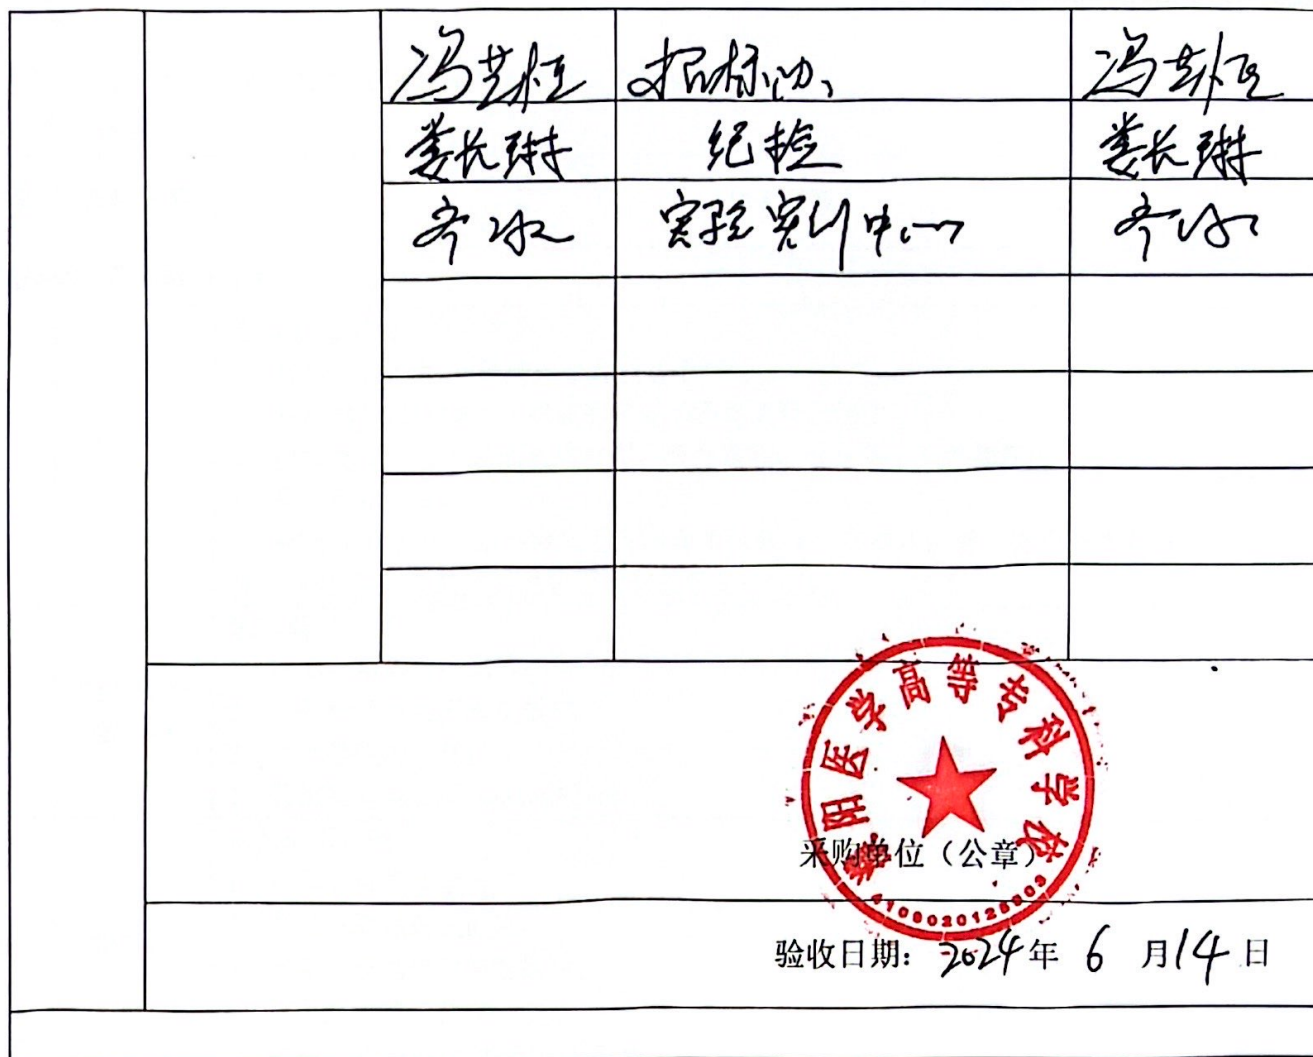 冯艺桓 招标办 冯艺桓
娄长琳 纪检 娄长琳
齐冰 实验实训中心 齐冰
濮阳医学高等专科学校
采购单位（公章）
验收日期：2024年 6 月14日